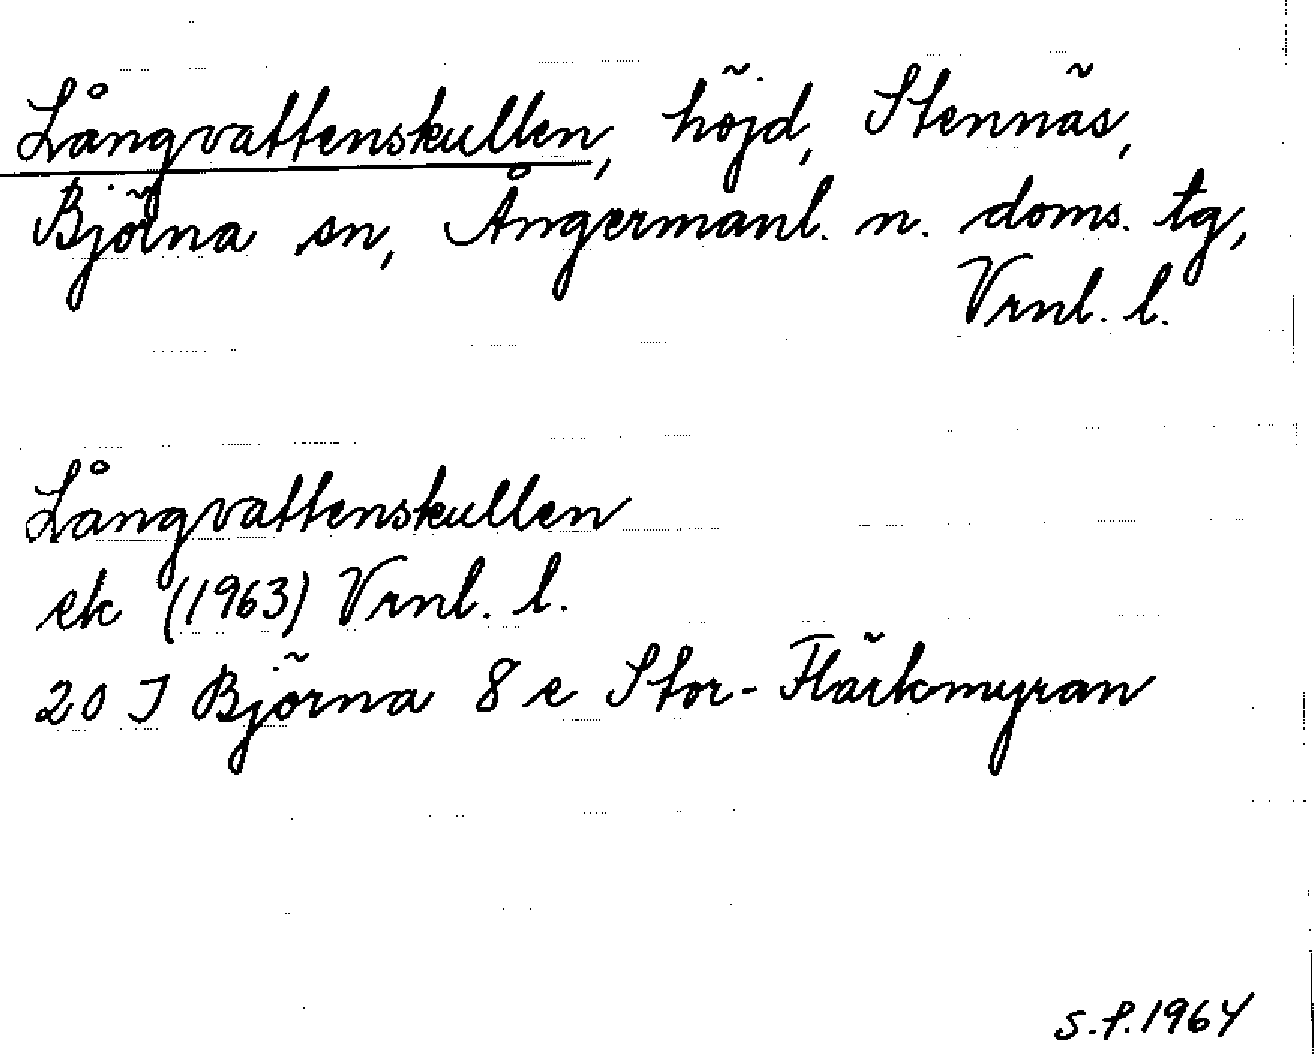 Långvattenskullen, höjd, Stennäs,
Björna sn, Ångermanl. n. doms. tg,
Vrnl. l.
Långvattenskullen
ek (1963) Vrnl. l.
20 J Björna 8 e Stor-Flärkmyran
S.P. 1964